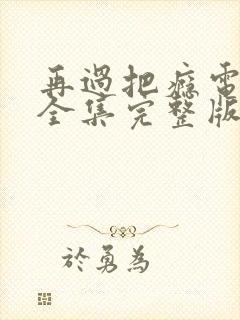 再過把癮電
全集完整版
於勇為